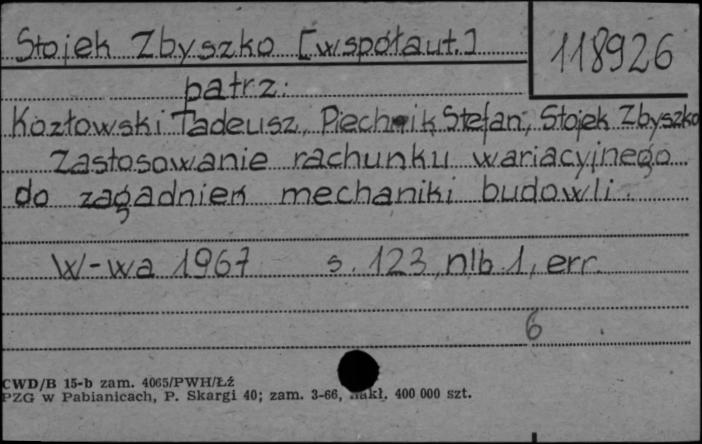 Stojek Zbyszko [współaut.]
118926
patrz:
Kozłowski Tadeusz, Piechnik Stefan, Stojek Zbyszko
Zastosowanie rachunku wariacyjnego
do zagadnień mechaniki budowli.
W-wa 1967 s. 123, nlb 1, err.
6
CWD/B 15-b zam. 4065/PWH/Łź
PZG w Pabianicach, P. Skargi 40; zam. 3-66, nakł. 400 000 szt.